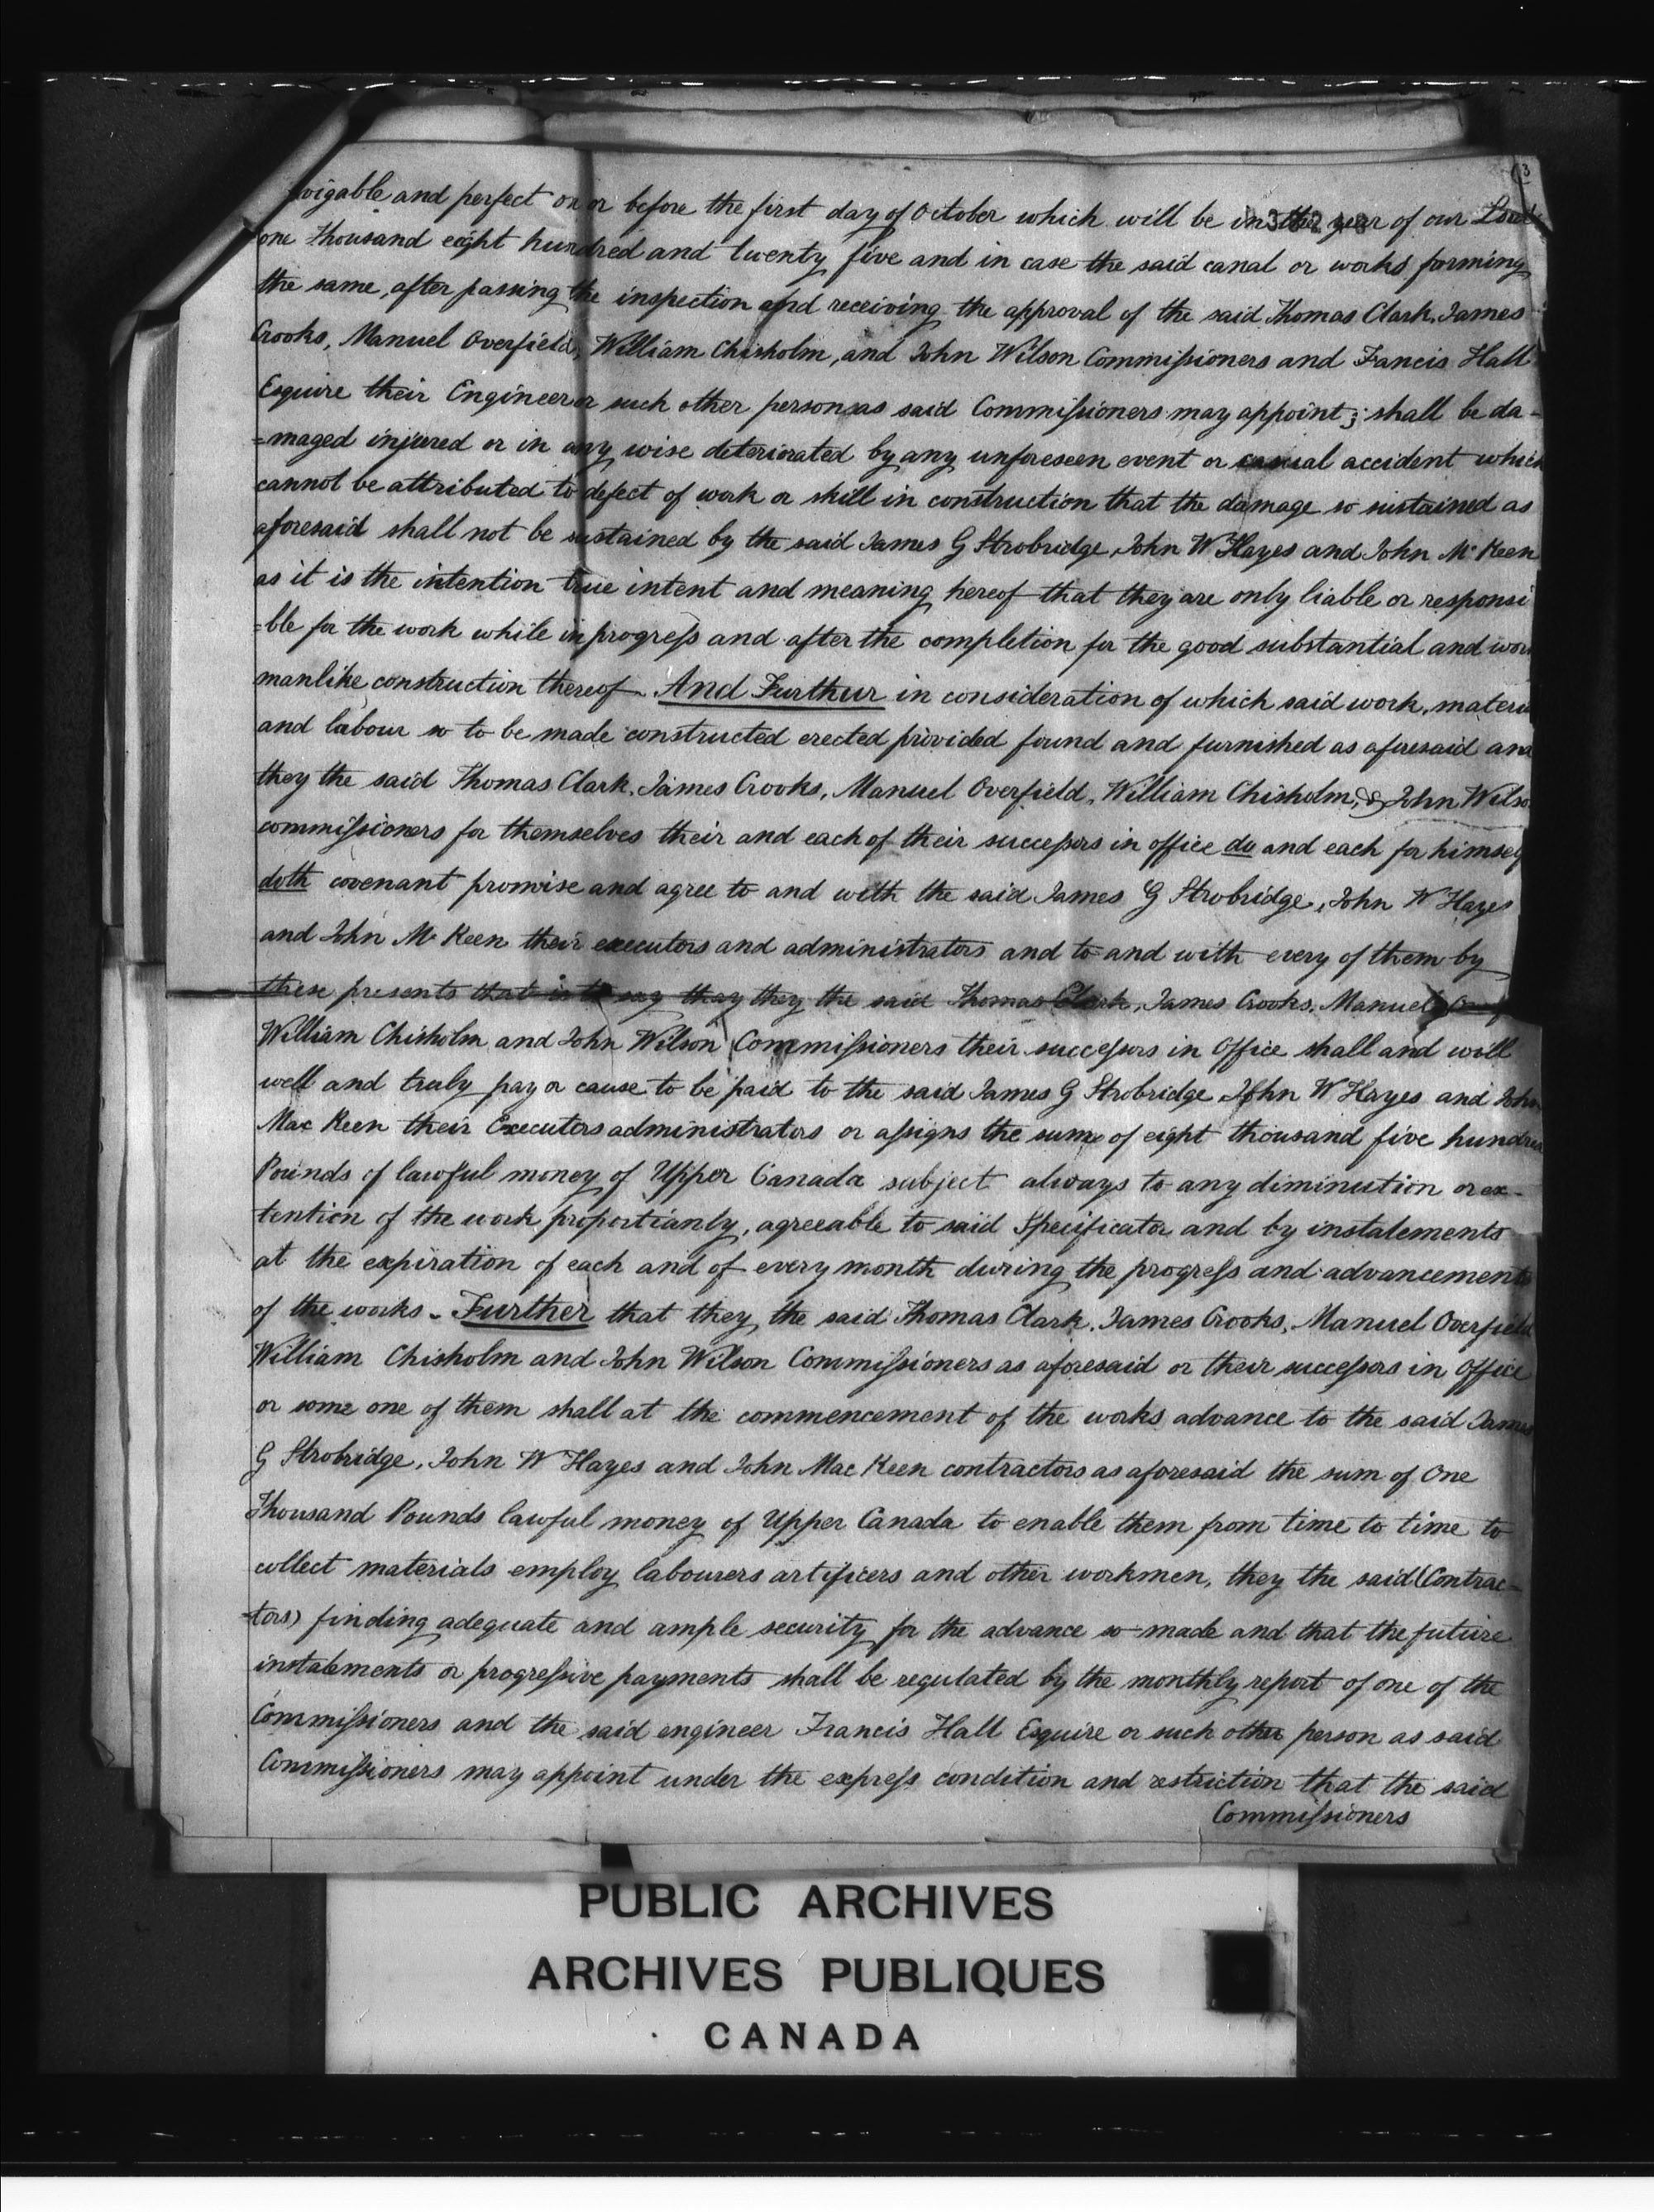 vigable and perfect on or before the first day of October which will be in the year of our Lord
one thousand eight hundred and twenty five and in case the said canal or works forming
the same, after passing the inspection and receiving the approval of the said Thomas Clark, James
Crooks, Manuel Overfield, William Chisholm, and John Wilson Commissioners and Francis Hall
Esquire their Engineer or such other person as said Commissioners may appoint; shall be da-
=maged injured or in any wise deteriorated by any unforeseen event or casual accident which
cannot be attributed to defect of work or skill in construction that the damage so sustained as
aforesaid shall not be sustained by the said James G Strobridge, John W Hayes and John Mc Keen
as it is the intention true intent and meaning hereof that they are only liable or responsi
=ble for the work while in progress and after the completion for the good substantial and work
manlike construction thereof - And Furthur in consideration of which said work, materi
and labour so to be made constructed erected provided found and furnished as aforesaid and
they the said Thomas Clark, James Crooks, Manuel Overfield, William Chisholm, & John Wilso
commissioners for themselves their and each of their successors in office do and each for himself
doth covenant promise and agree to and with the said James G Strobridge, John W Hayes
and John Mc Keen their executors and administrators and to and with every of them by
these presents that is to say thay they the said Thomas Clark, James Crooks, Manuel
William Chisholm and John Wilson Commissioners their successors in Office shall and will
well and truly pay or cause to be paid to the said James G Strobridge John W Hayes and John
Mac Keen their Executors administrators or assigns the sum of eight thousand five hundred
Pounds of lawful money of Upper Canada subject always to any diminution or ex-
tention of the work proportianly, agreeable to said Specificator and by instalements
at the expiration of each and of every month during the progress and advancement
of the works - Further that they the said Thomas Clark, James Crooks, Manuel Overfield
William Chisholm and John Wilson Commissioners as aforesaid or their successors in Office
or some one of them shall at the commencement of the works advance to the said James
G Strobridge, John W Hayes and John Mac Keen contractors as aforesaid the sum of One
Thousand Pounds lawful money of Upper Canada to enable them from time to time to
collect materials employ labourers artificers and other workmen, they the said (Contrac-
-tors) finding adequate and ample security for the advance so made and that the future
instalements or progressive payments shall be regulated by the monthly report of one of the
Commissioners and the said engineer Francis Hall Esquire or such other person as said
Commissioners may appoint under the express condition and restriction that the said
Commissioners
PUBLIC ARCHIVES
ARCHIVES PUBLIQUES
CANADA